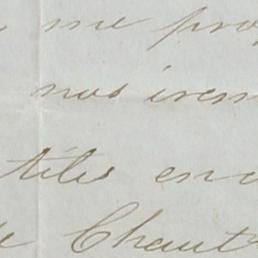 me pro
nos iren
tiles en
Chaut